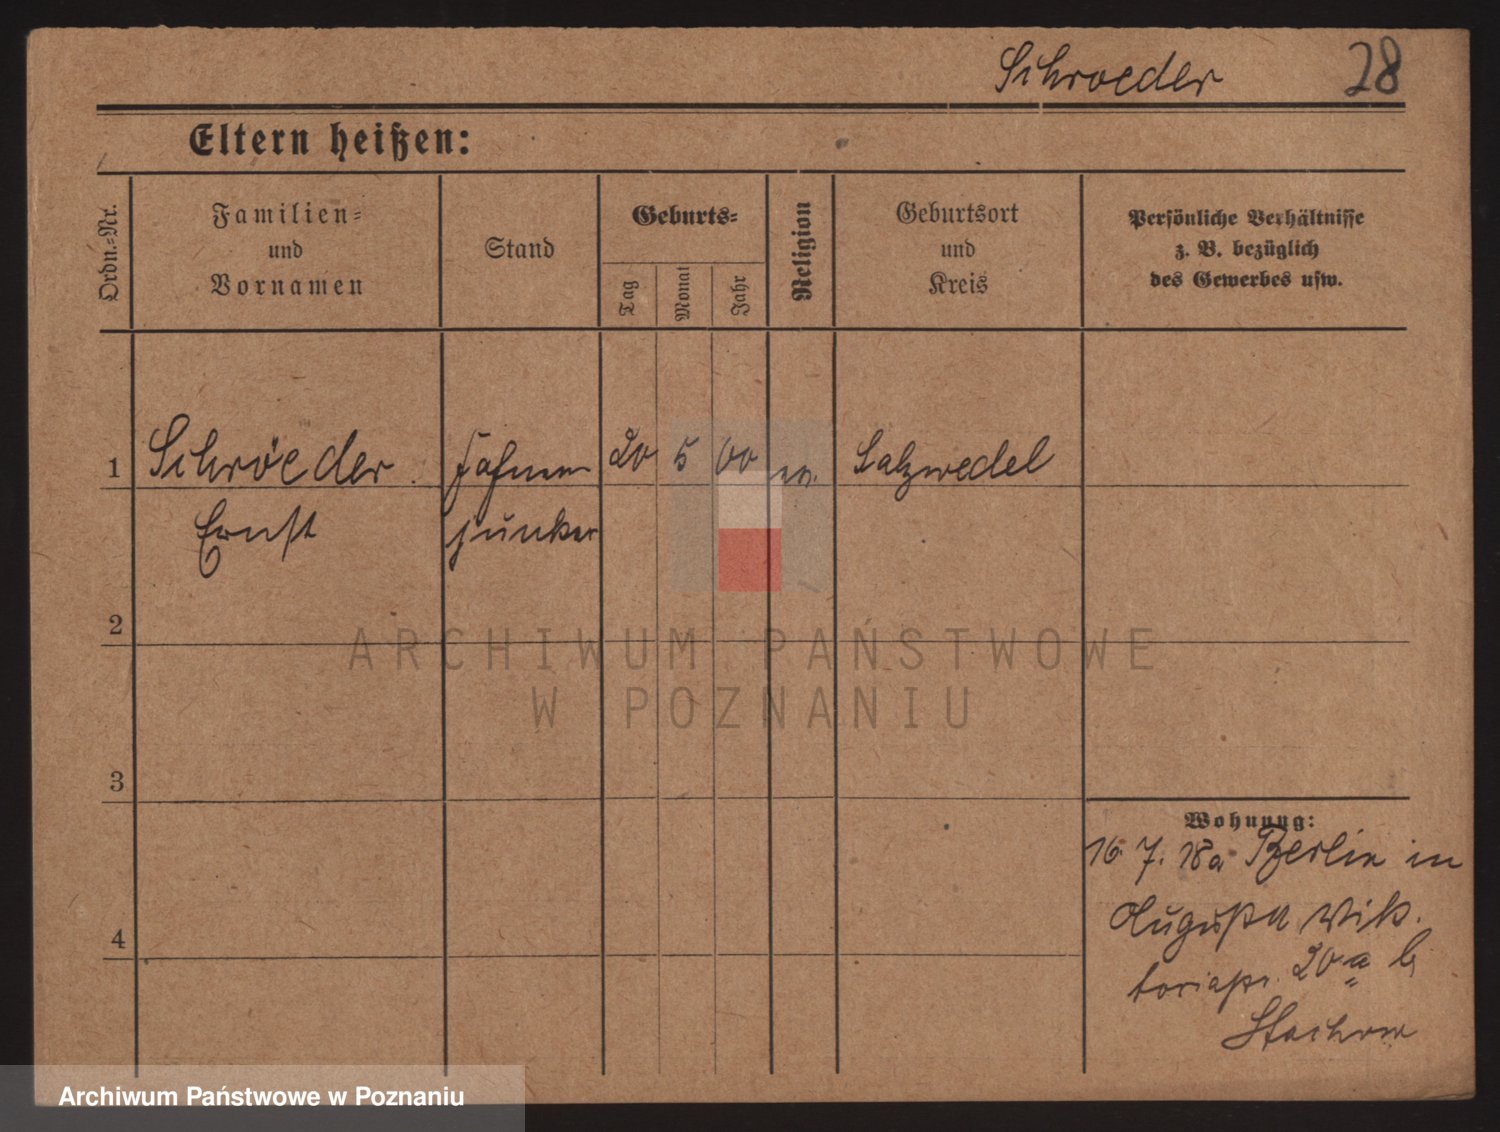 Schroeder 28
Eltern heißen:
Ordn.-Nr.
Familien-
und
Vornamen
Stand
Geburts-
Tag
Monat
Jahr
Religion
Geburtsort
und
Kreis
Persönliche Verhältnisse
z. B. bezüglich
des Gewerbes usw.
1 Schröeder Fahnen 20 5 00 ev. Salzwedel
Ernst junker
2
3
4
Wohnung:
16. 7. 18 a Berlin in
Augusta Vik.
toriastr. 20a b/
ARCHIWUM PAŃSTWOWE
W POZNANIU
Archiwum Państwowe w Poznaniu